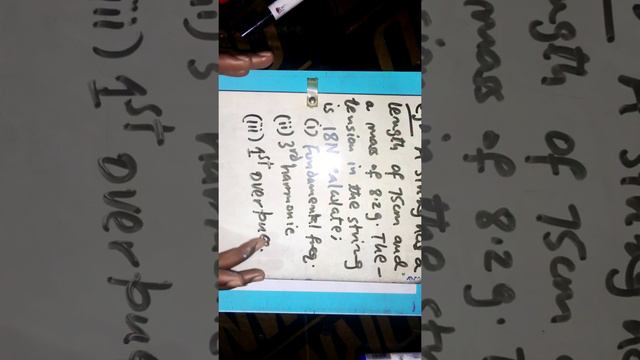 Eg A string has a
length of 75cm and
a mass of 8.2g. The
tension in the string
is 18N calculate;
(i) Fundamental freq.
(ii) 3rd harmonic
(iii) 1st overtone.